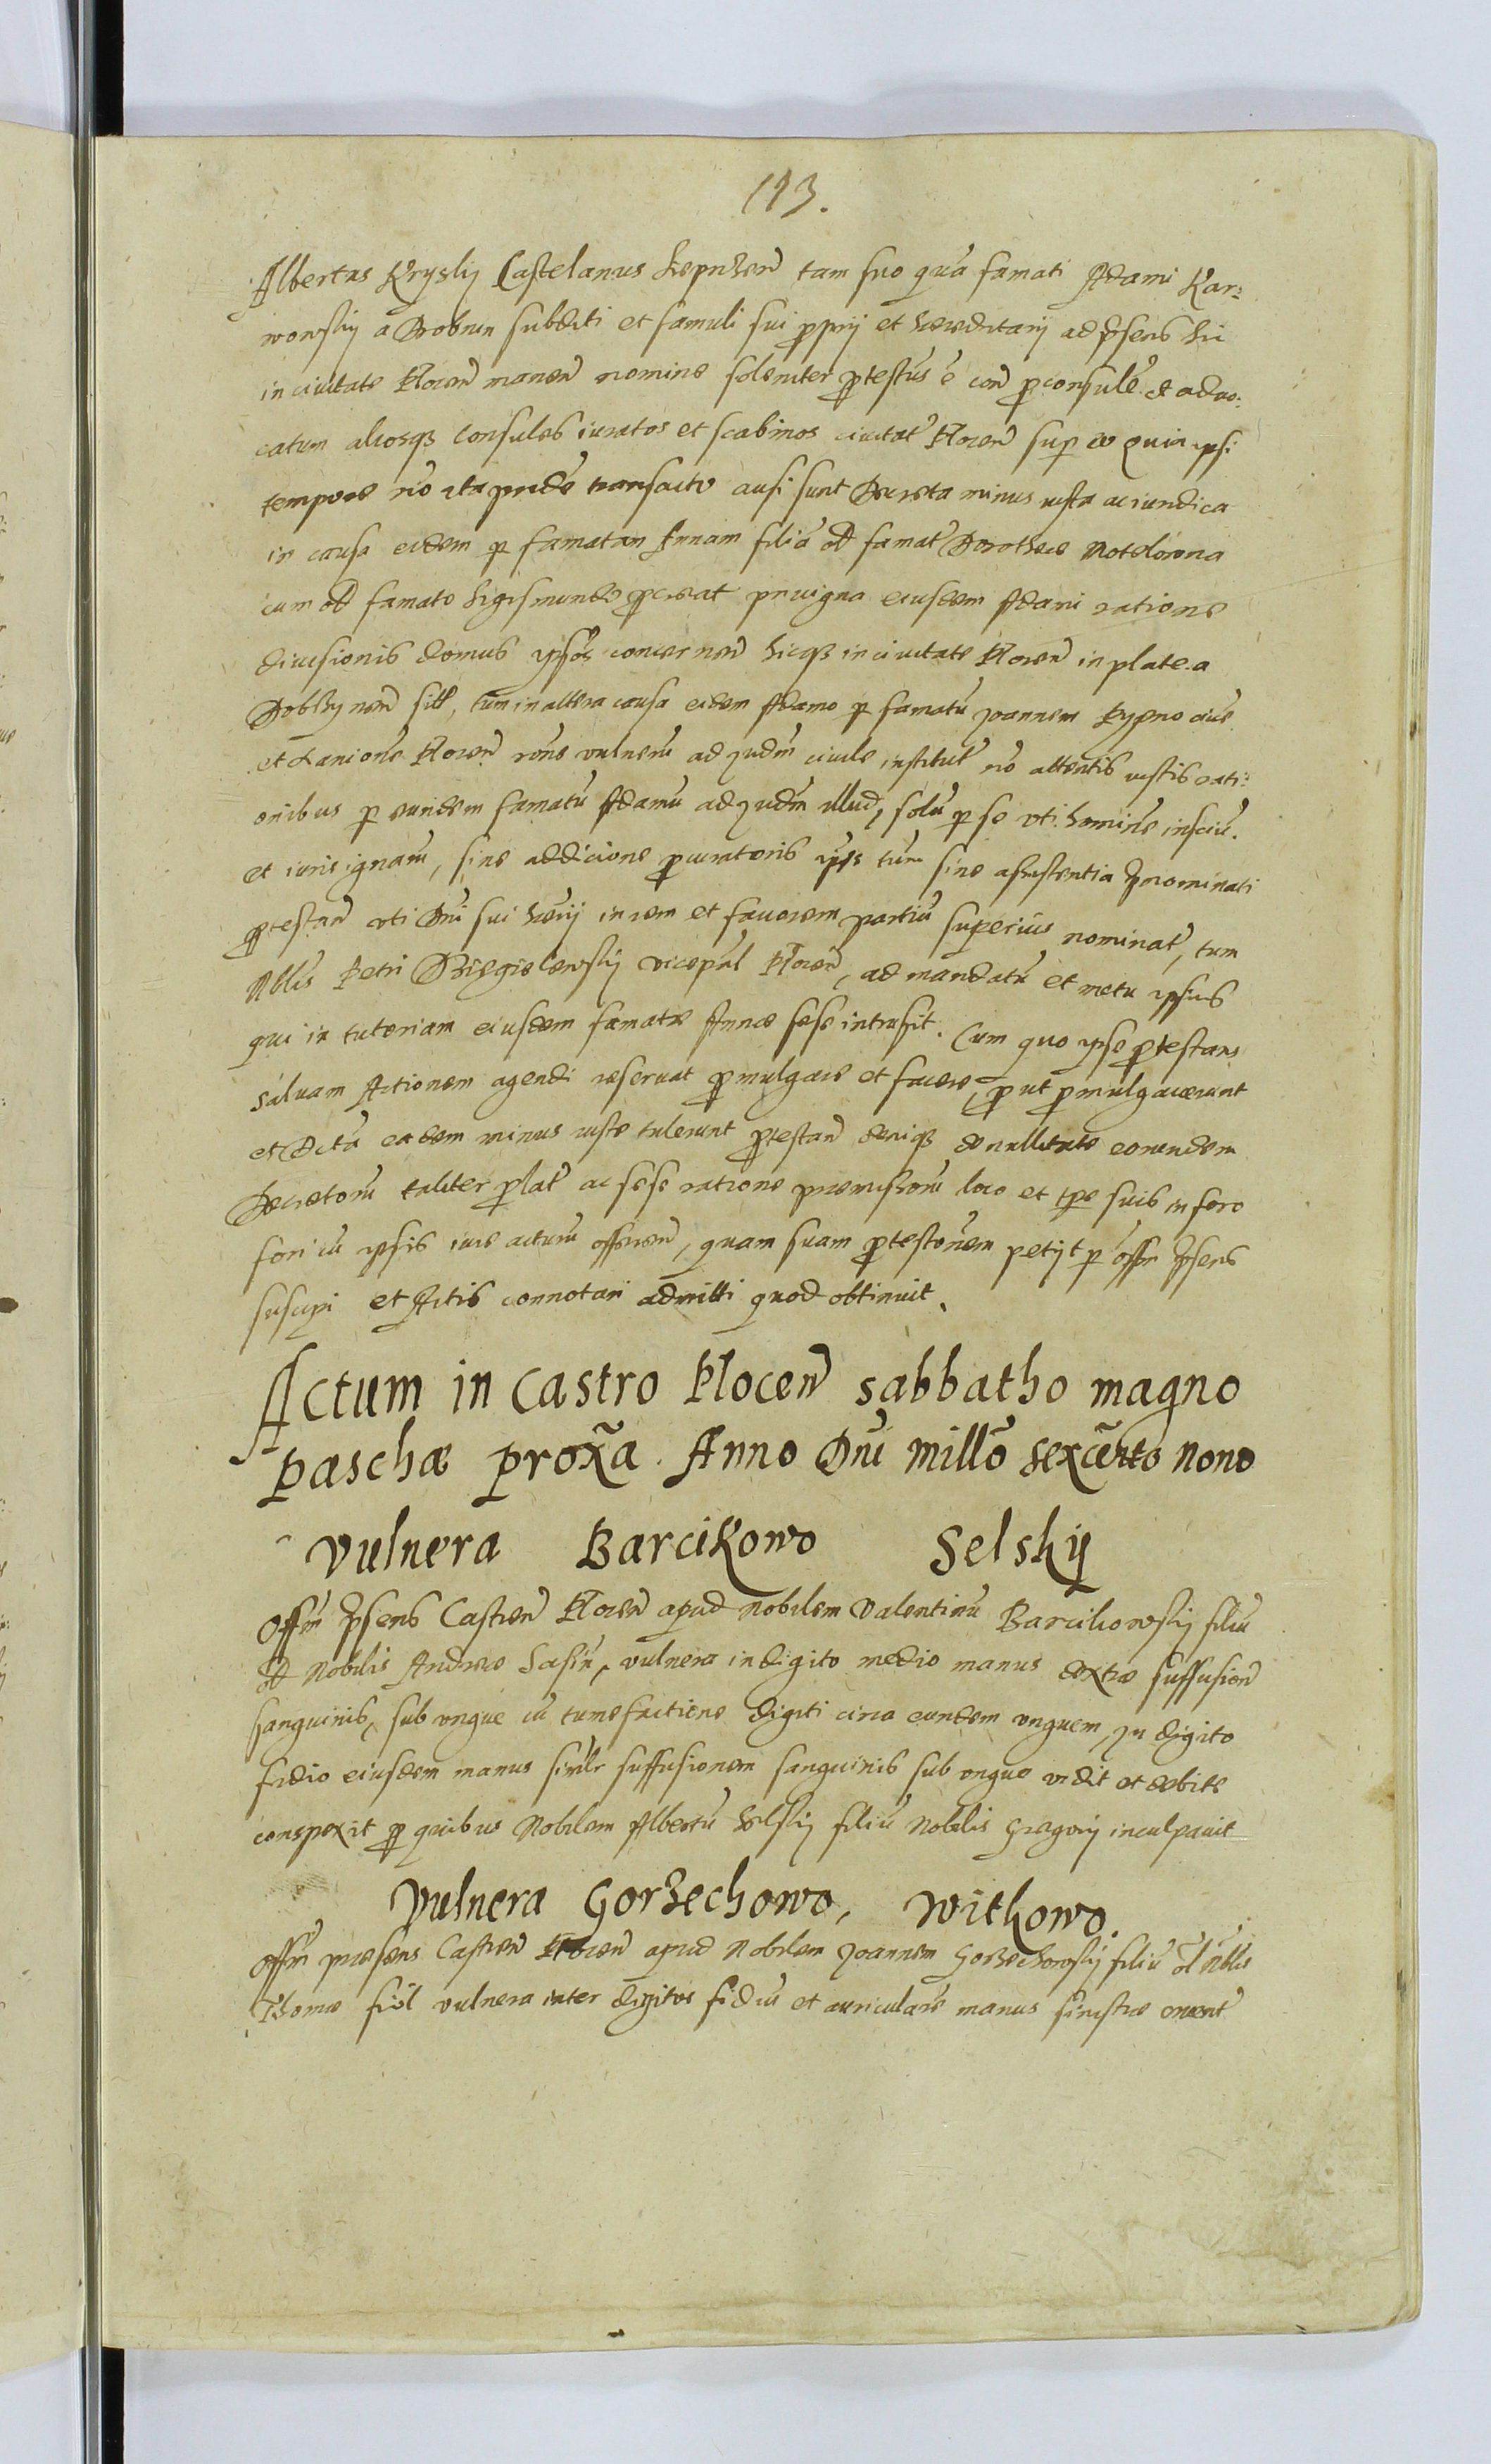 113.
Albertus Krysky Castelanus Siepricen̄ tam suo quā famati Adami Kar=
wowsky a Drobnin subditi et famuli sui ꝓprij et hæreditarij ad p̄sens hic
in ciuitate Plocen̄ manen̄ nomine solemniter ꝓtestus ē con̄ ꝓconsulē et aduo:
catum aliosqꝫ Consules iuratos et scabinos ciuitat̄ Plocen̄ sup eo quia ipsi
tempore nō ita pridē transacto ausi sunt Decreta minus iusta ac iuridica
in causa eidem ꝑ famatam Annam filiā ol famat̄ Dorotheæ
cum ol famato Sigismundo ꝓcreat priuigna eiusdem Adami ratione
diuisionis domus ipsos concernen̄ hicqꝫ in ciuitate Plocen̄ in platea
Dobrzynen̄ sitt, tum in altera causa eidem Adamo ꝑ famatū Joannem Kypno ciuē
et Lanionē Plocen̄ rōne vulnerū ad Judm̄ ciuile institut̄ nō attentis iustis rati:
onibus ꝑ eundem famatū Adamū ad Judm̄ illud, solū ꝑ se vti hominē insciū
et iuris ignarū, sine addicione ꝓcuratoris tum sine assistentia p̄nominati
ꝓtestan̄ vti Dnī sui hærij in rem et fauorem partiū superius nominat̄, tum
Nblis Petri Biegielewsky vicepal̄ Plocen̄, ad mandatū et metu ipsius
qui in tutoriam eiusdem famatæ Annæ sese intrusit. Cum quo ipse ꝓtestans
saluam Actionem agendi reseruat ꝓmulgare et facere, ꝓut ꝓmulgauerunt
et Dctā eadem minus iuste tulerunt ꝓtestan̄ deniqꝫ de nullitate eorundem
Decretorū taliter ꝓlat̄ ac sese ratione præmissorū loco et tp̄e suis in foro
fori cū ipsis iure acturū offeren̄, quam suam ꝓtestōnem petijt ꝑ offm̄ p̄sens
suscipi et Actis connotari admitti quod obtinuit.
Actum in Castro Plocen̄ sabbatho magno
paschæ prox̄a. Anno Dnī Millō sexcēto nono
Vulnera Barcikowo Selsky
Offm̄ p̄sens Castren̄ Plocen̄ apud Nobilem Valentinū Barcikowsky filiū
ol Nobilis Andreæ Sasin, vulnera in digito medio manus dextræ suffusion̄
sanguinis, sub vngue cū tumefactione digiti circa eundem vnguem, In digito
fidio eiusdem manus simlr suffusionem sanguinis sub vngue vidit et debite
conspexit ꝓ quibus Nobilem Albertū Selsky filiū Nobilis Gregorij inculpauit
Vulnera Gorzechowo, Withowo.
Offm̄ præsens Castren̄ Plocen̄ apud Nobilem Joannem Gorzechowsky filiū ol Nblis
Thomæ vulnera inter digitos fidiū et auricularē manus sinistræ cruent̄